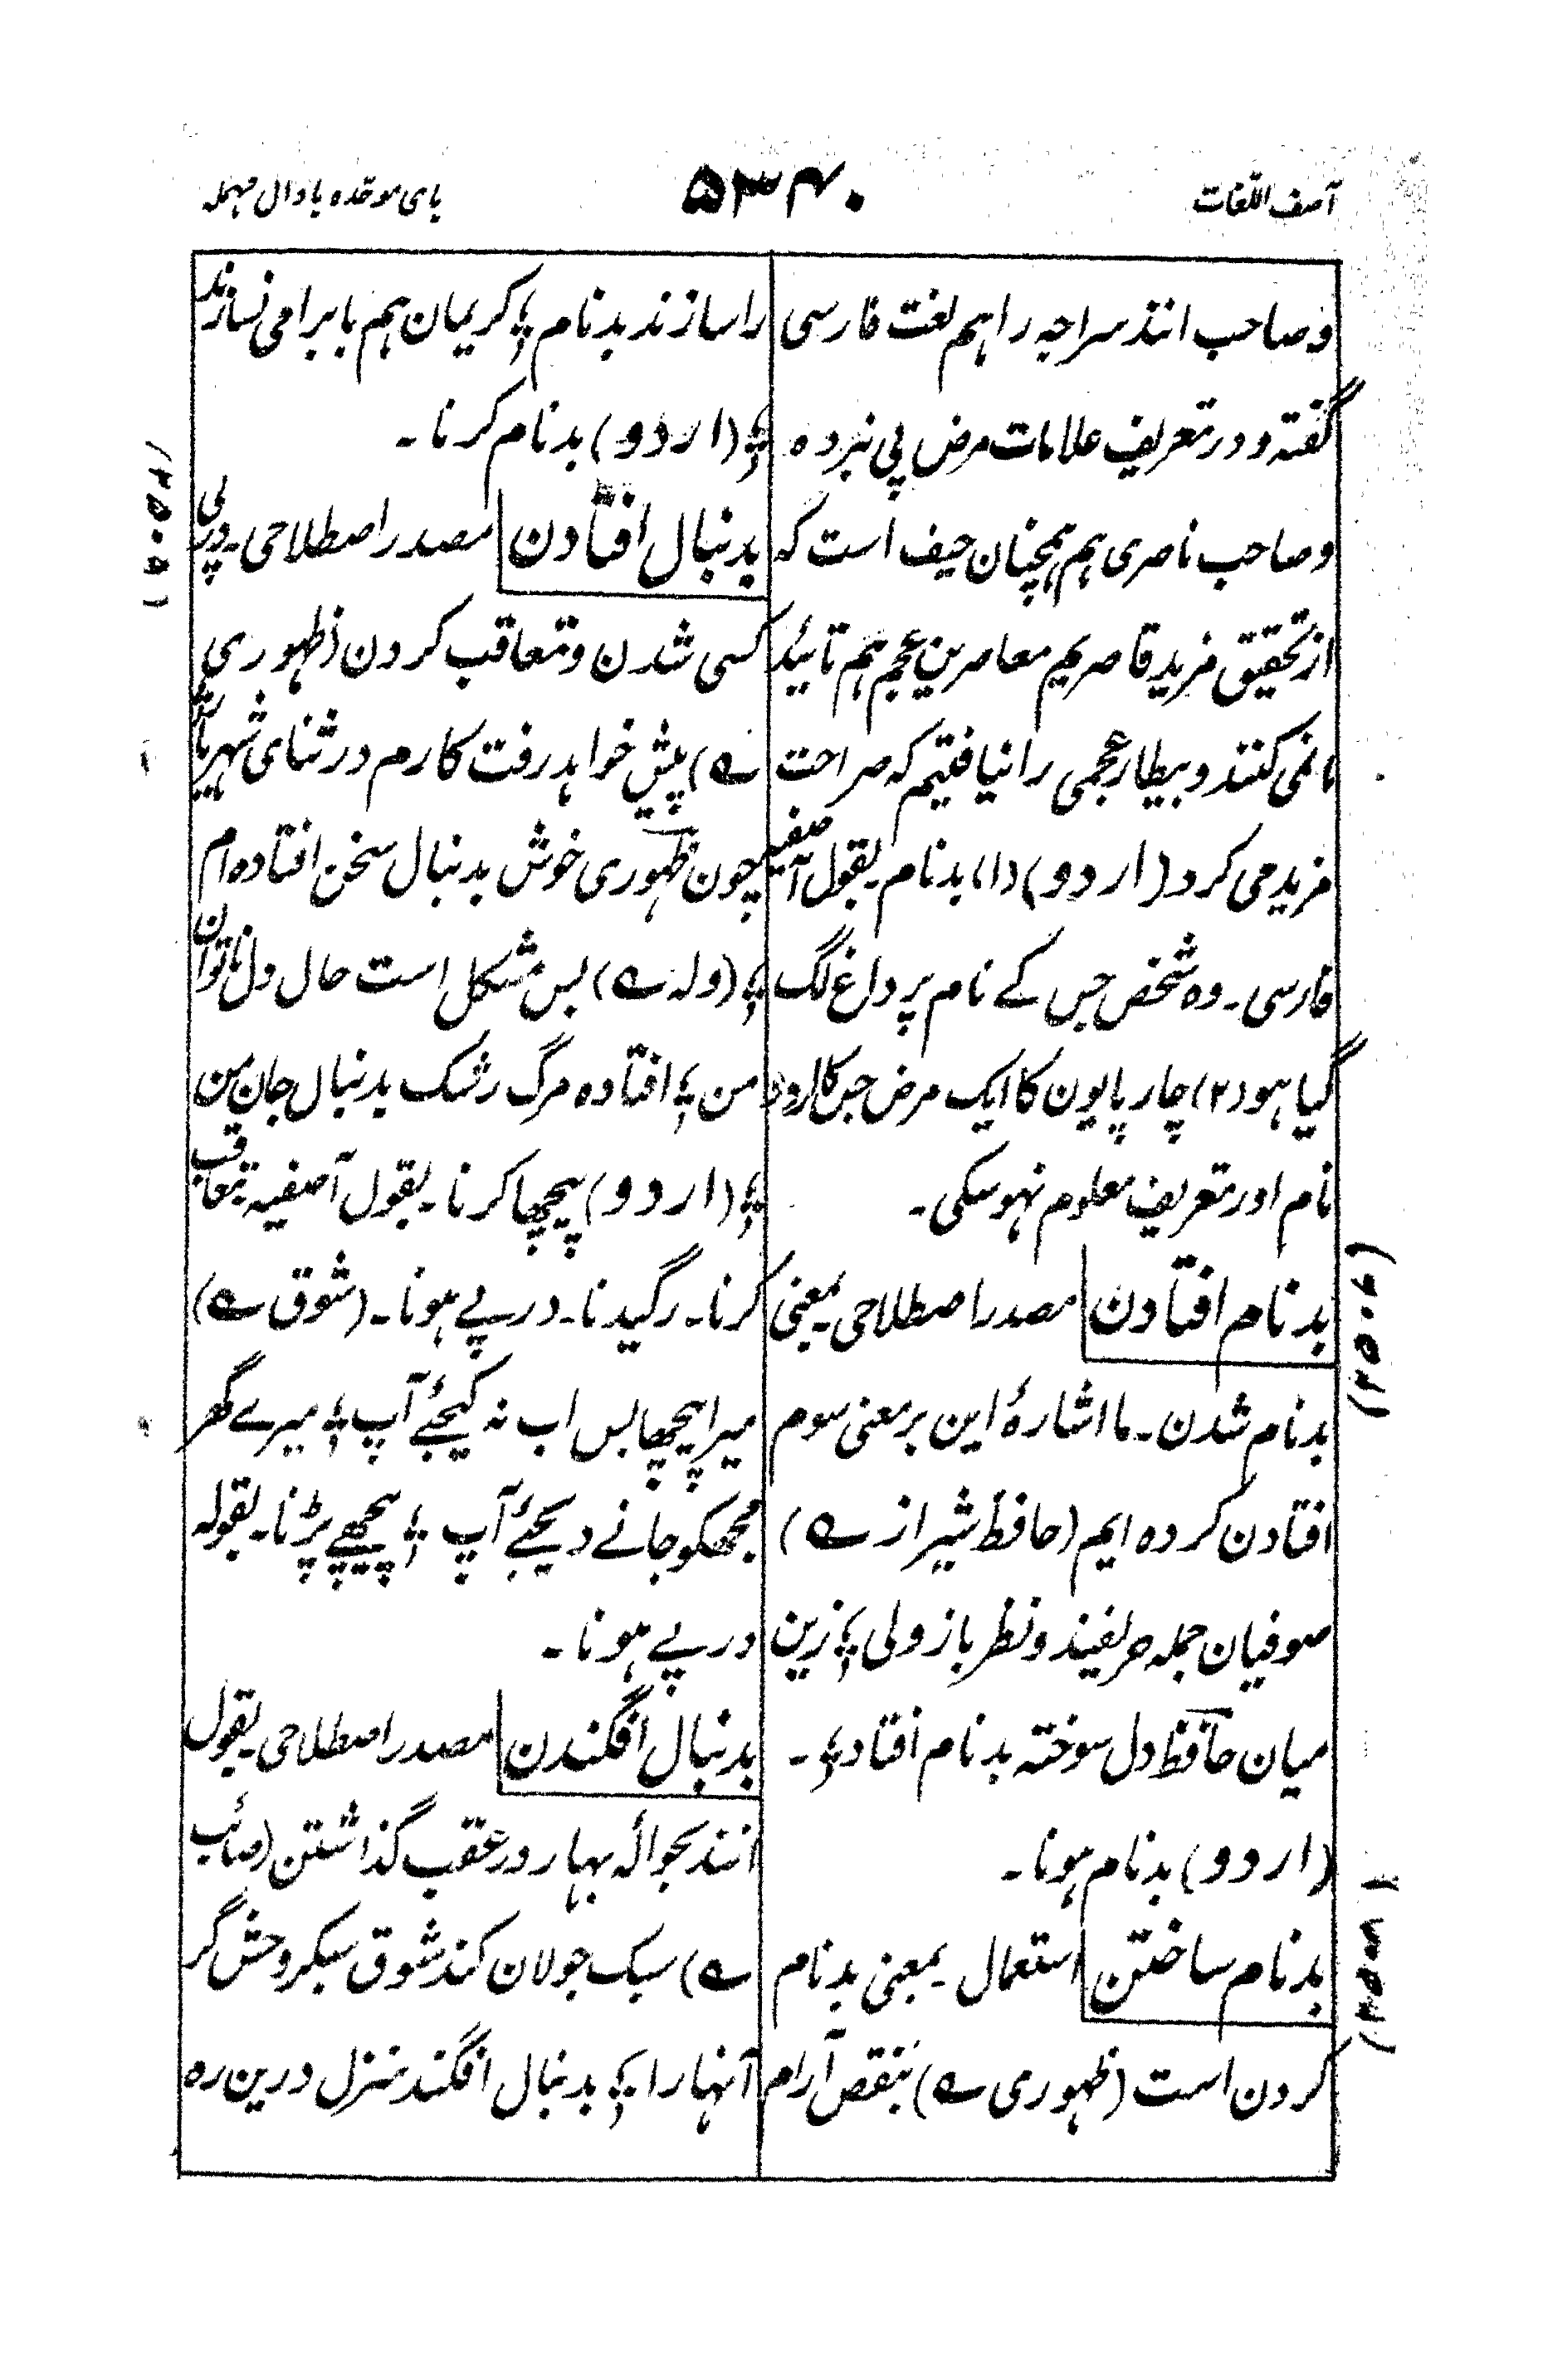 آصف اللغات
۵۳۴۰
بای موحّده با دال مهمله
و صاحب انند سراجه را هم لغت فارسی
گفته و در تعریف علامات مرض پی نبرده
و صاحب ناصری هم همچنان حیف است که
از تحقیق مزید قاصریم معاصرین عجم هم تائید
ما نمی کنند و بیطار عجمی را نیافتیم که صراحت
مزید می کرد (اردو) (۱) بدنام۔ بقول آصفیہ
فارسی۔ وہ شخص جس کے نام پر داغ لگ
گیا ہو (۲) چارپایون کا ایک مرض جس کا اردو
نام اور تعریف معلوم نہوسکی۔
بدنام افتادن مصدر اصطلاحی۔ بمعنی
بدنام شدن۔ ما اشارۂ این بر معنی سوم
افتادن کرده ایم (حافظ شیراز ے)
صوفیان جمله حریفند و نظر باز ولی ؛ زین
میان حافظ دل سوخته بدنام افتاد ؛۔
(اردو) بدنام ہونا۔
بدنام ساختن استعمال۔ بمعنی بدنام
کردن است (ظهوری ے) بنقص آرام
را سازند بدنام ؛ کریمان هم بابرامی نسازند
؛ (اردو) بدنام کرنا۔
بدنبال افتادن مصدر اصطلاحی۔ در پی
کسی شدن و تعاقب کردن (ظهوری
ے) پیش خواهد رفت کارم در ثنای شهریار
چون ظهوری خوش بدنبال سخن افتاده ام
؛ (وله ے) بس مشکل است حال دل ناتوان
من ؛ افتاده مرگ رشک بدنبال جان من
؛ (اردو) پیچھا کرنا۔ بقول آصفیہ تعاقب
کرنا۔ رگیدنا۔ درپے ہونا۔ (شوق ے)
میرا پیچھا بس اب نہ کیجئے آپ ؛ میرے گھر
مجھکو جانے دیجئے آپ ؛ پیچھے پڑنا۔ بقولہ
درپے ہونا۔
بدنبال افگندن مصدر اصطلاحی۔ بقول
انند بحوالۂ بهار در عقب گذاشتن (صائب
ے) سبک جولان کند شوق سبکروحش گر
آنها را ؛ بدنبال افگند منزل درین ره
(۲۵۰۲)
(۲۵۰۳)